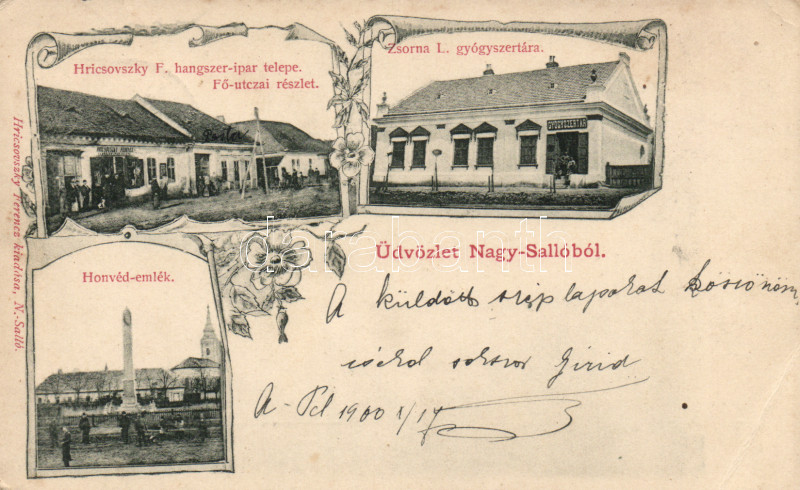 Hricsovszky F. hangszer-ipar telepe.
Fő-utczai részlet.
Zsorna L. gyógyszertára.
GYÓGYSZERTÁR
Honvéd-emlék.
Hricsovszky Ferencz kiadása, N.-Salló.
Üdvözlet Nagy-Sallóból.
A küldött szép lapokat köszönöm
1900
darabanth